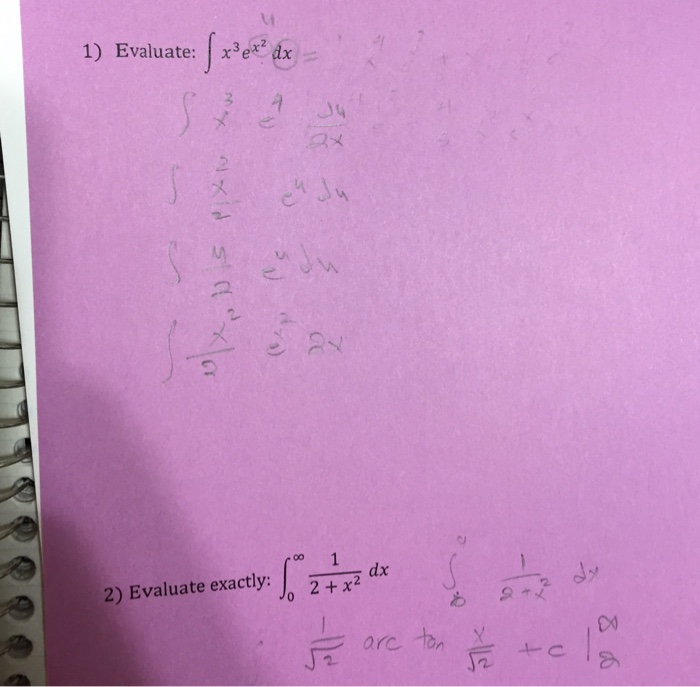 1) Evaluate: ∫ x³e^{x²} dx =
u
∫ x³ e^u du/2x
∫ x²/2 e^u du
∫ u/2 e^u du
∫ x²/2 e^{x²} 2x
2) Evaluate exactly: ∫₀^∞ 1/(2 + x²) dx
∫ 1/(2+x²) dx
1/√2 arc tan x/√2 + c |